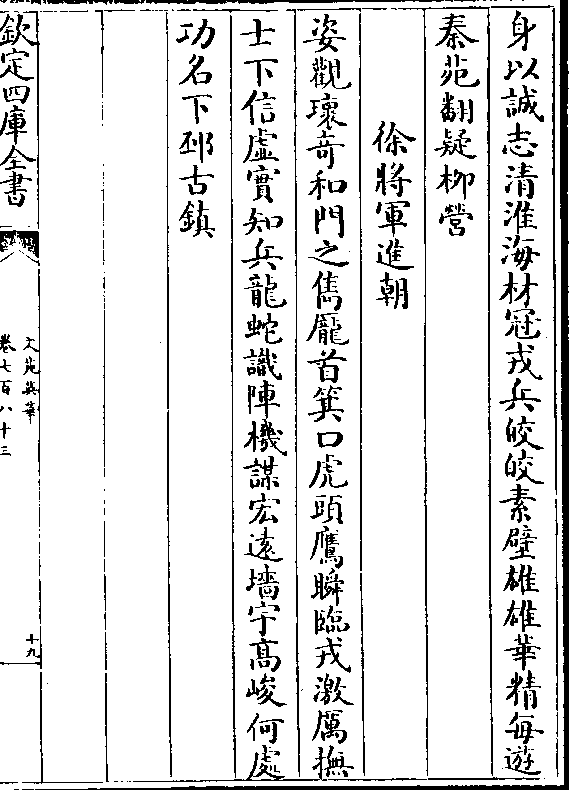 身以誠志清淮海材冠戎兵皎皎素壁雄雄華精每遊
秦苑翻疑柳營
徐將軍進朝
姿觀瓌奇和門之雋龎首箕口虎頭鷹瞬臨戎激厲撫
士下信虛實知兵龍蛇識陣機謀宏逺墻宇髙峻何處
功名下邳古鎮
欽定四庫全書
文苑英華
卷七百八十三
十九